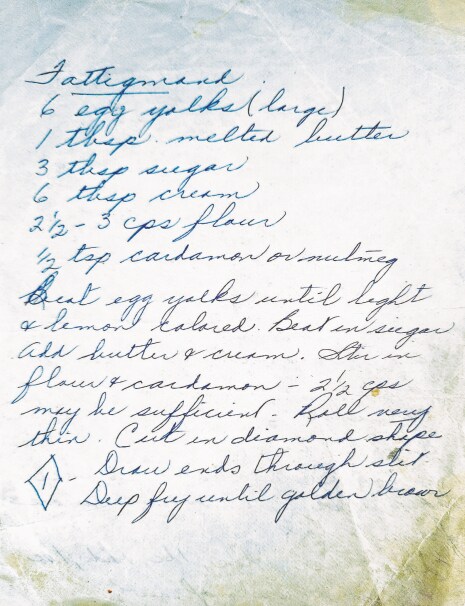 Fattigmand.
6 egg yolks (large)
1 tbsp. melted butter
3 tbsp sugar
6 tbsp cream
2 1/2 - 3 cps flour
1/2 tsp cardamon or nutmeg
Beat egg yolks until light
& lemon colored. Beat in sugar
Add butter & cream. Stir in
flour & cardamon - 2 1/2 cps
may be sufficient. Roll very
thin. Cut in diamond shape
- Draw ends through slit.
Deep fry until golden brown